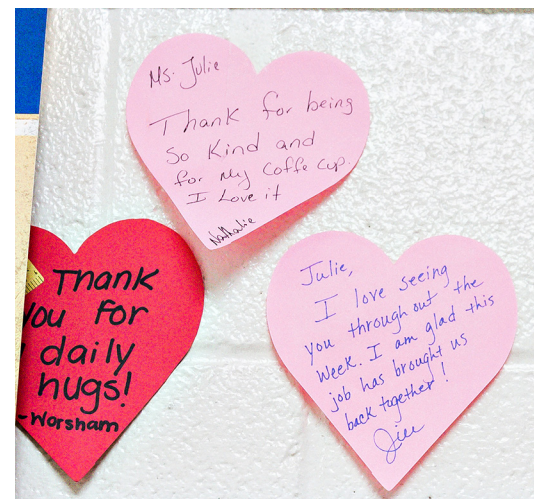 Ms. Julie
Thank for being
So Kind and
for My Coffe Cup.
I Love it
Nathalie
Thank
You for
daily
hugs!
-Worsham
Julie,
I love seeing
you throughout the
week. I am glad this
job has brought us
back together!
Jill